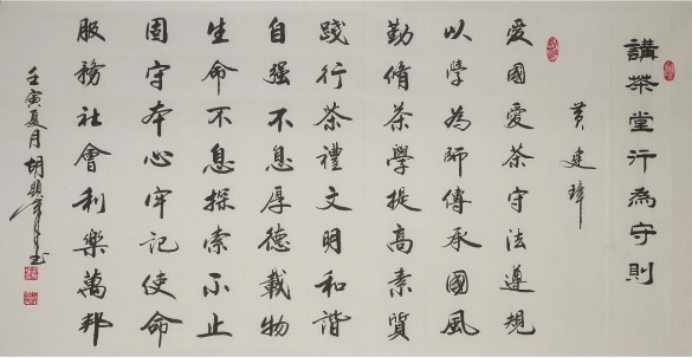 講茶堂行為守則
黄建璋
愛國愛茶守法遵規
以學為師傳承國風
勤脩茶學提高素質
踐行茶禮文明和諧
自强不息厚德載物
生命不息探索不止
固守本心牢記使命
服務社會利樂萬邦
壬寅夏月胡